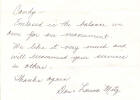 Candy -
Enclosed is the balance we
owe for our monument.
We like it very much and
will recommend your service
to others.
Thanks again
Don & Louise